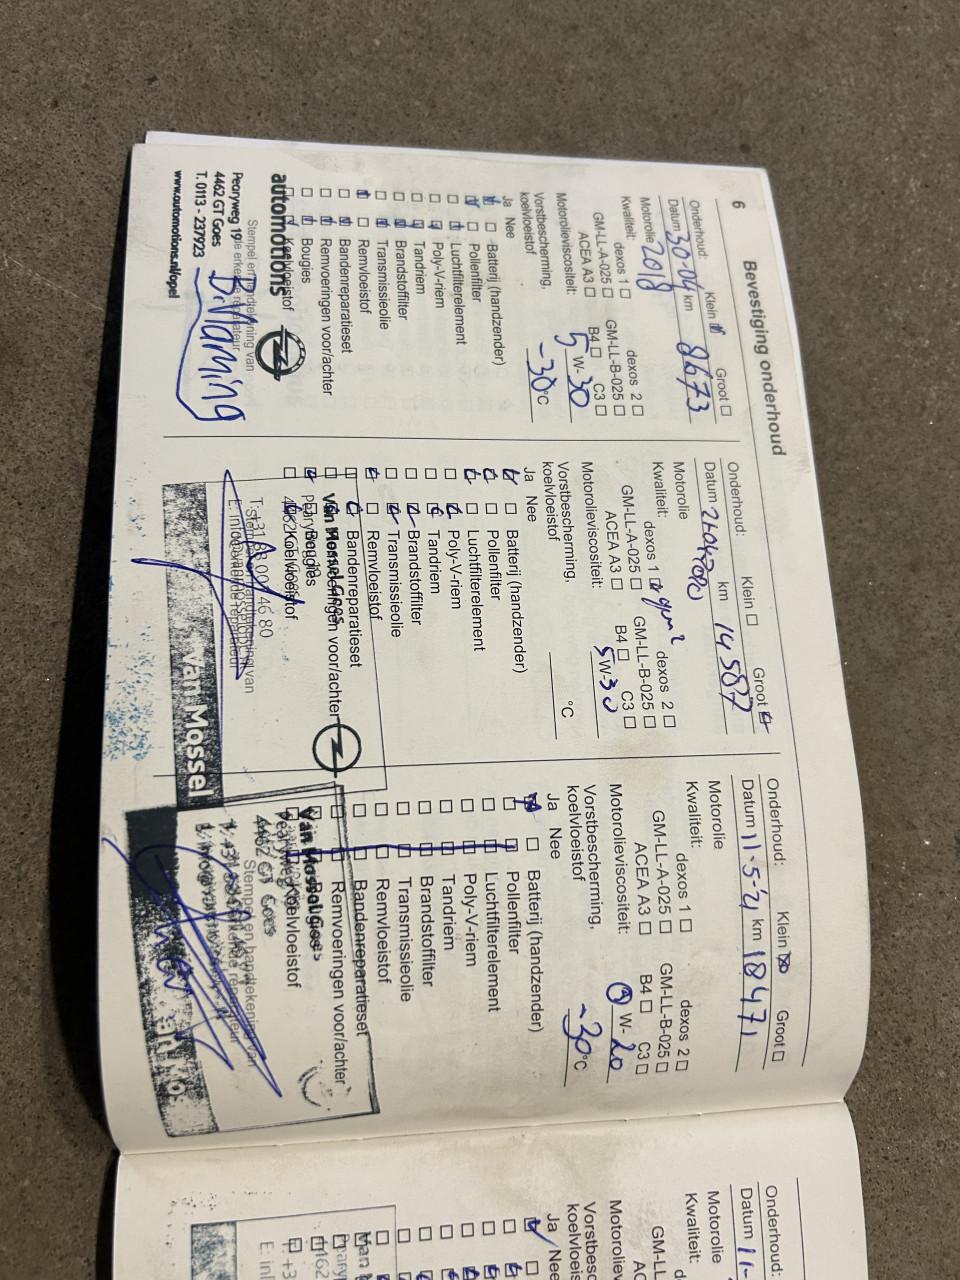 6
Bevestiging onderhoud
Onderhoud: Klein Groot
Datum 30-04 km 8673
Motorolie 2018
Kwaliteit: dexos 1 dexos 2
GM-LL-A-025 GM-LL-B-025
ACEA A3 B4 C3
Motorolieviscositeit: 5 W-30
Vorstbescherming,
koelvloeistof -30 °C
Ja Nee
Batterij (handzender)
Pollenfilter
Luchtfilterelement
Poly-V-riem
Tandriem
Brandstoffilter
Transmissieolie
Remvloeistof
Bandenreparatieset
Remvoeringen voor/achter
Bougies
Koelvloeistof
automotions
Stempel en handtekening van
Pearyweg 19
4462 GT Goes
T. 0113 - 237923
www.automotions.nl/opel
Onderhoud: Klein Groot
Datum km 14587
Motorolie
Kwaliteit: dexos 1 dexos 2
GM-LL-A-025 GM-LL-B-025
ACEA A3 B4 C3
Motorolieviscositeit: 5 W-30
Vorstbescherming,
koelvloeistof °C
Ja Nee
Batterij (handzender)
Pollenfilter
Luchtfilterelement
Poly-V-riem
Tandriem
Brandstoffilter
Transmissieolie
Remvloeistof
Bandenreparatieset
Remvoeringen voor/achter
Bougies
Koelvloeistof
Van Mossel Goes
van Mossel
Onderhoud: Klein Groot
Datum 11-5-21 km 18471
Motorolie
Kwaliteit: dexos 1 dexos 2
GM-LL-A-025 GM-LL-B-025
ACEA A3 B4 C3
Motorolieviscositeit: 0 W-20
Vorstbescherming,
koelvloeistof -30 °C
Ja Nee
Batterij (handzender)
Pollenfilter
Luchtfilterelement
Poly-V-riem
Tandriem
Brandstoffilter
Transmissieolie
Remvloeistof
Bandenreparatieset
Remvoeringen voor/achter
Bougies
Koelvloeistof
Van Mossel Goes
4462 GT Goes
Stempel en handtekening van
Onderhoud:
Datum 11-
Motorolie
Kwaliteit:
GM-LL
Motoroliev
Vorstbesc
koelvloeis
Ja Nee